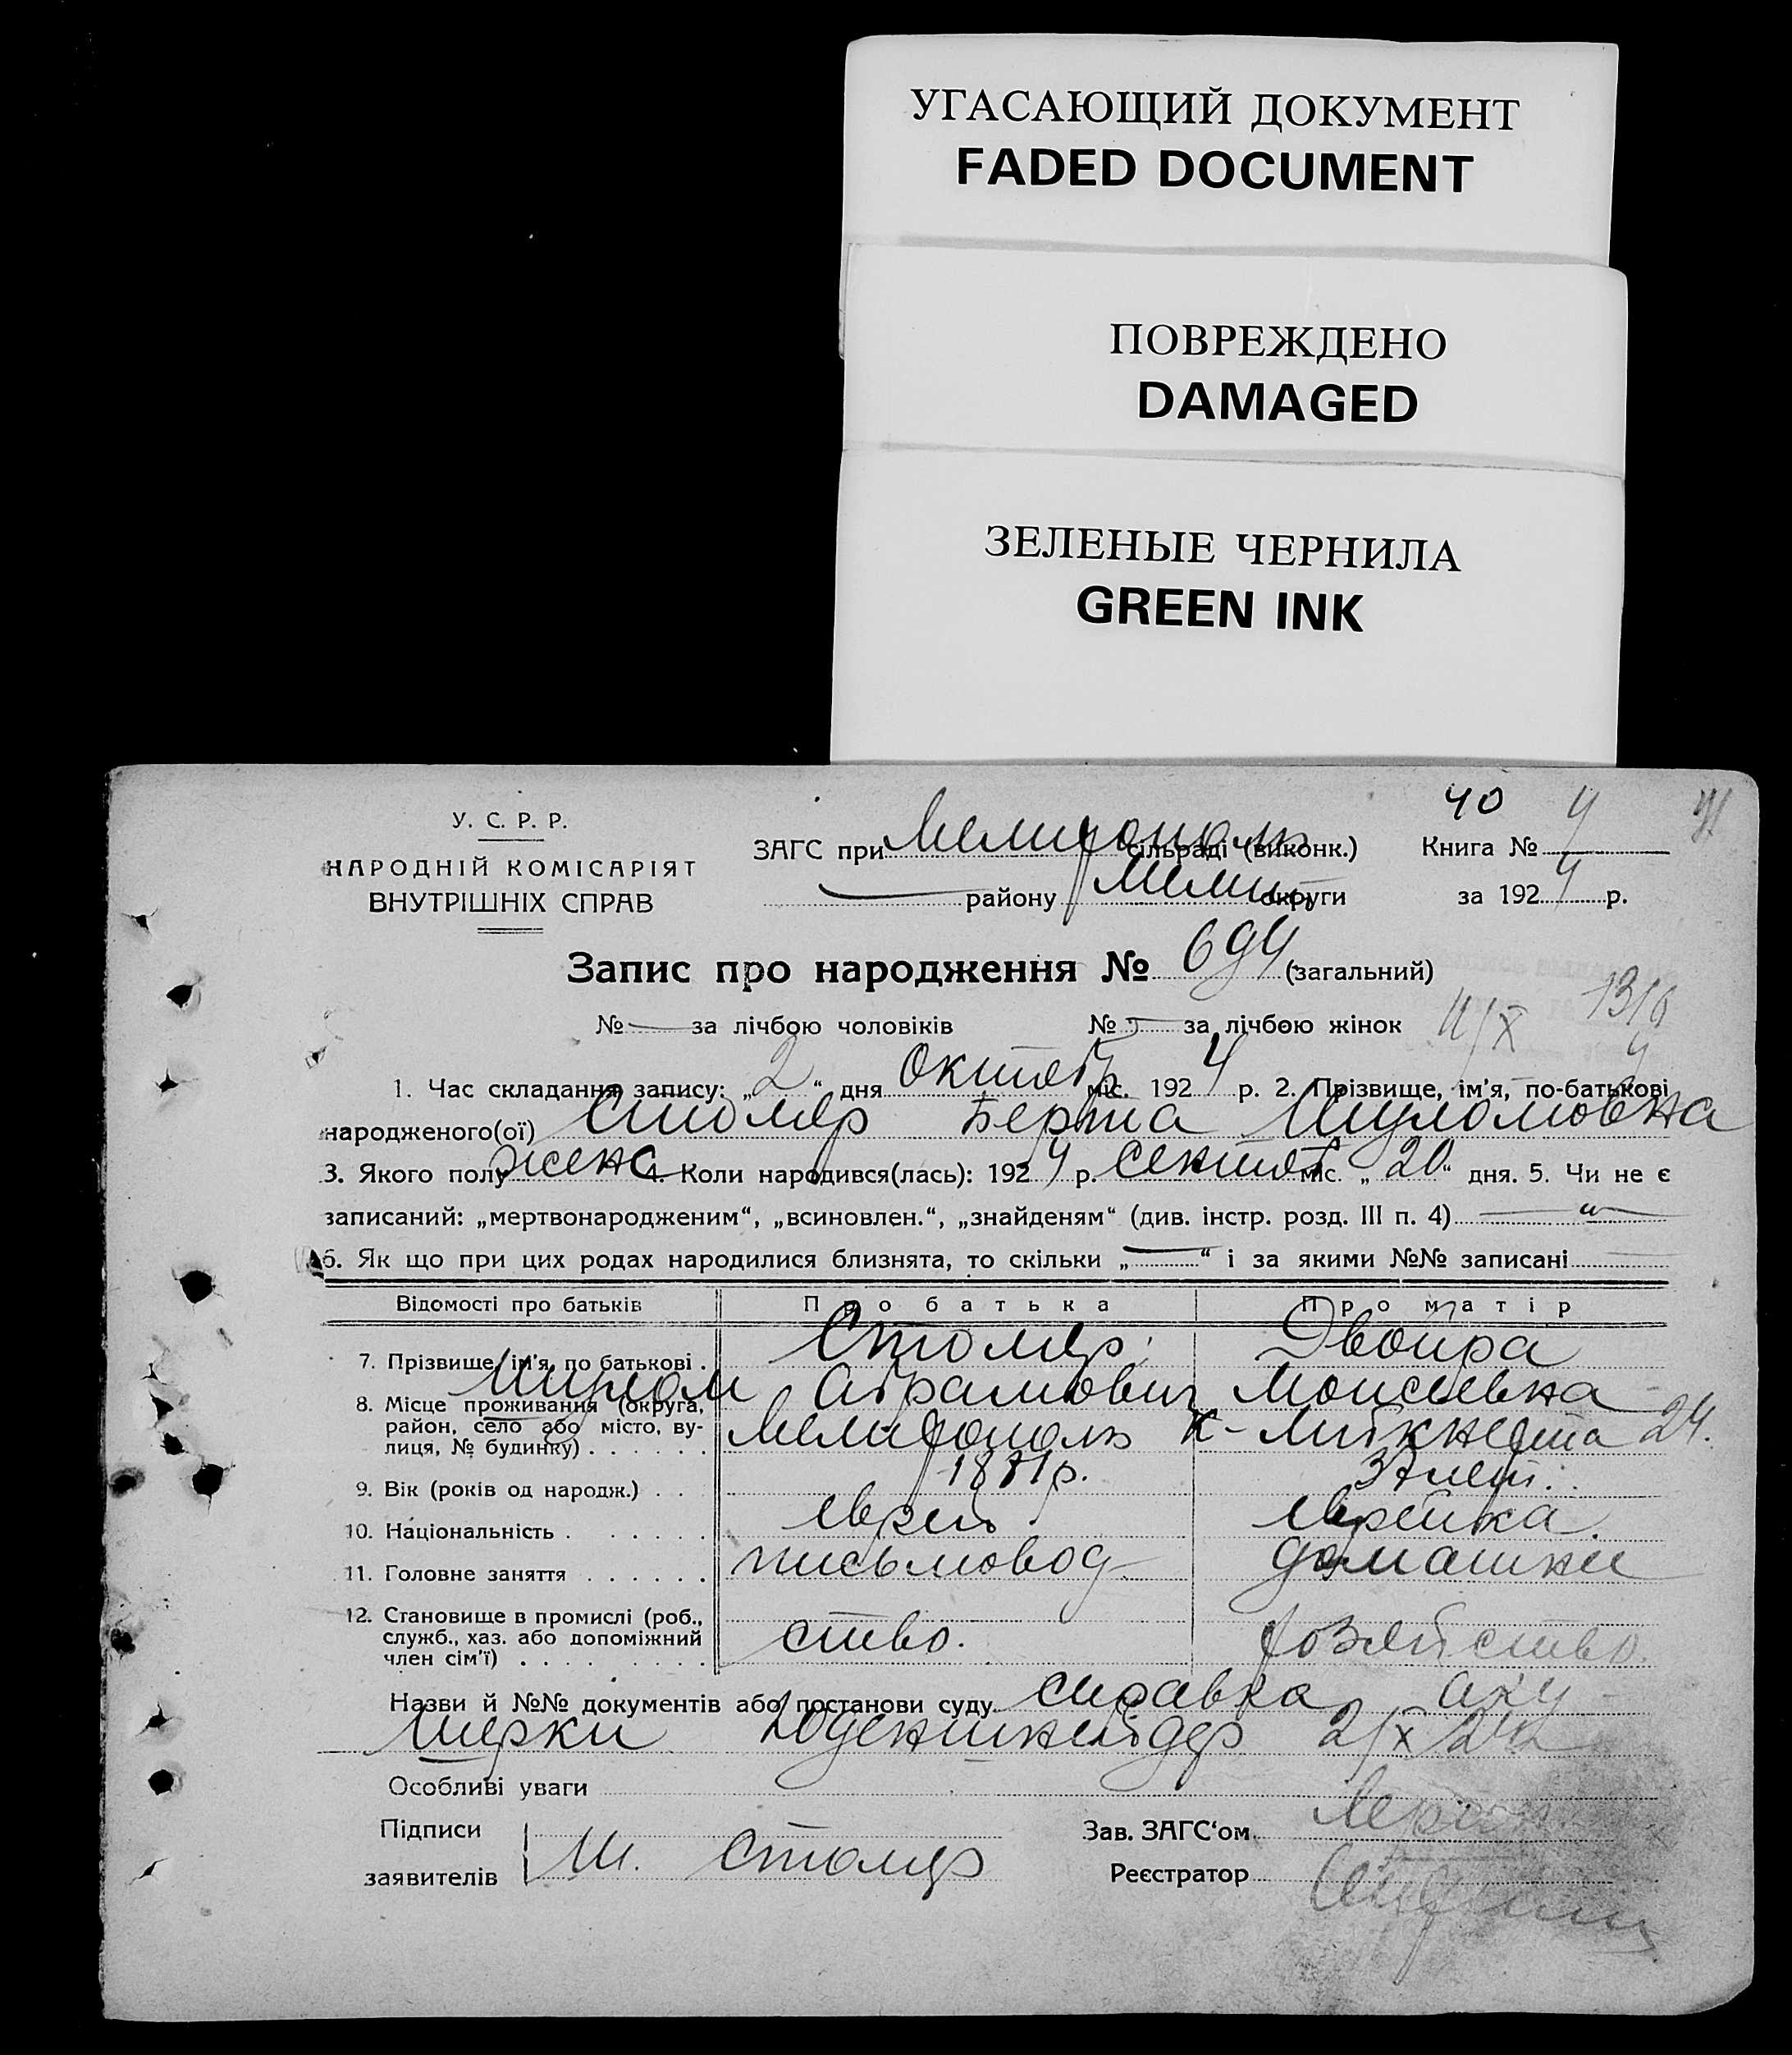 УГАСАЮЩИЙ ДОКУМЕНТ
FADED DOCUMENT
ПОВРЕЖДЕНО
DAMAGED
ЗЕЛЕНЫЕ ЧЕРНИЛА
GREEN INK
40 4
У. С. Р. Р.
НАРОДНІЙ КОМІСАРІЯТ
ВНУТРІШНІХ СПРАВ
ЗАГС при Мелитополь сільраді (виконк.) Книга №
району Мелит округи за 1924 р.
Запис про народження № 694 (загальний)
№ — за лічбою чоловіків № за лічбою жінок
1. Час складання запису: „2“ дня Октяб міс. 1924 р. 2. Прізвище, ім'я, по-батькові
народженого(ої) Столяр Берта Шуломовна
3. Якого полу жено 4. Коли народився(лась): 1924 р. Сентяб міс. „20“ дня. 5. Чи не є
записаний: „мертвонародженим“, „всиновлен.“, „знайденям“ (див. інстр. розд. III п. 4)
6. Як що при цих родах народилися близнята, то скільки „—“ і за якими №№ записані
Відомості про батьків Про батька Про матір
7. Прізвище, ім'я, по батькові . Столяр Двойра
Шулом Абрамович Моисеевна
8. Місце проживання (округа, район, село або місто, вулиця, № будинку) . . . . . . Мелитополь К-Либкнехта 24.
9. Вік (років од народж.) . . 1881 р. 37 лет.
10. Національність . . . . . . еврей еврейка.
11. Головне заняття . . . . . . письмовод- домашнее
12. Становище в промислі (роб., служб., хаз. або допоміжний член сім'ї) . . . . . . . . ство. хозяйство.
Назви й №№ документів або постанови суду справка аку-
шерки Юденшнейдер 2/X 24
Особливі уваги
Підписи
заявителів Ш. Столяр
Зав. ЗАГС‘ом
Реєстратор